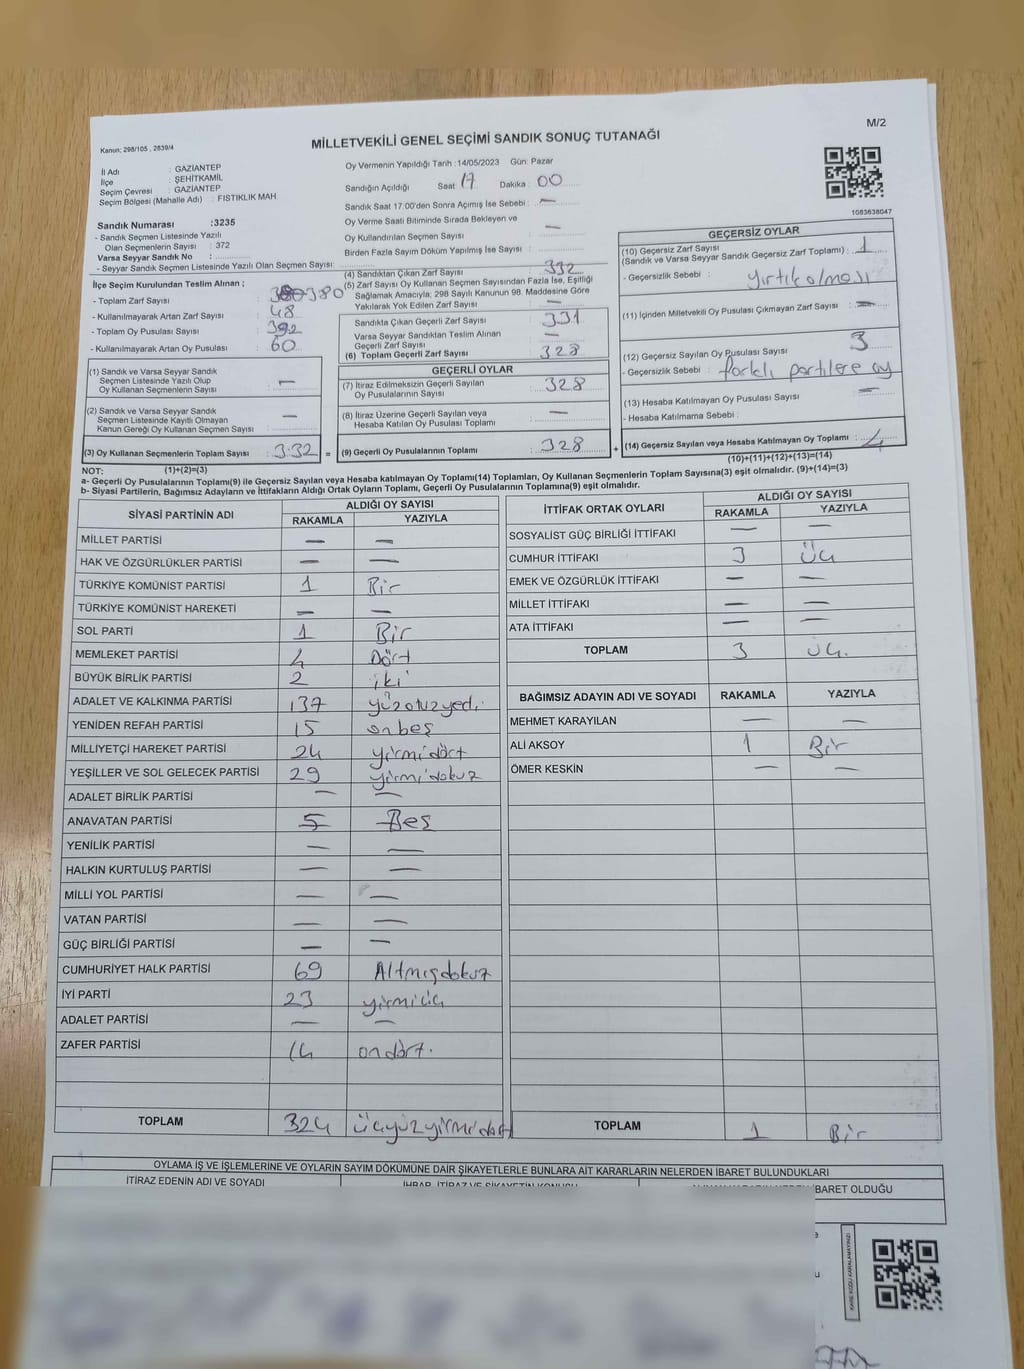 M/2
Kanun: 298/105 , 2839/4
MİLLETVEKİLİ GENEL SEÇİMİ SANDIK SONUÇ TUTANAĞI
İl Adı : GAZİANTEP
İlçe : ŞEHİTKAMİL
Seçim Çevresi : GAZİANTEP
Seçim Bölgesi (Mahalle Adı) : FISTIKLIK MAH
Sandık Numarası :3235
- Sandık Seçmen Listesinde Yazılı
Olan Seçmenlerin Sayısı : 372
Varsa Seyyar Sandık No :
- Seyyar Sandık Seçmen Listesinde Yazılı Olan Seçmen Sayısı:
Oy Vermenin Yapıldığı Tarih :14/05/2023 Gün: Pazar
Sandığın Açıldığı Saat : 17 Dakika : 00
Sandık Saat 17:00'den Sonra Açımış İse Sebebi : —
Oy Verme Saati Bitiminde Sırada Bekleyen ve
Oy Kullandırılan Seçmen Sayısı : —
Birden Fazla Sayım Döküm Yapılmış İse Sayısı :
1083638047
İlçe Seçim Kurulundan Teslim Alınan ;
- Toplam Zarf Sayısı : 380
- Kullanılmayarak Artan Zarf Sayısı : 48
- Toplam Oy Pusulası Sayısı : 392
- Kullanılmayarak Artan Oy Pusulası : 60
(1) Sandık ve Varsa Seyyar Sandık
Seçmen Listesinde Yazılı Olup
Oy Kullanan Seçmenlerin Sayısı : —
(2) Sandık ve Varsa Seyyar Sandık
Seçmen Listesinde Kayıtlı Olmayan
Kanun Gereği Oy Kullanan Seçmen Sayısı : —
(3) Oy Kullanan Seçmenlerin Toplam Sayısı : 332 =
(1)+(2)=(3)
(4) Sandıktan Çıkan Zarf Sayısı : 332
(5) Zarf Sayısı Oy Kullanan Seçmen Sayısından Fazla İse, Eşitliği
Sağlamak Amacıyla; 298 Sayılı Kanunun 98. Maddesine Göre
Yakılarak Yok Edilen Zarf Sayısı : —
Sandıkta Çıkan Geçerli Zarf Sayısı : 331
Varsa Seyyar Sandıktan Teslim Alınan
Geçerli Zarf Sayısı : —
(6) Toplam Geçerli Zarf Sayısı : 328
GEÇERLİ OYLAR
(7) İtiraz Edilmeksizin Geçerli Sayılan
Oy Pusulalarının Sayısı : 328
(8) İtiraz Üzerine Geçerli Sayılan veya
Hesaba Katılan Oy Pusulası Toplamı : —
(9) Geçerli Oy Pusulalarının Toplamı : 328 +
GEÇERSİZ OYLAR
(10) Geçersiz Zarf Sayısı
(Sandık ve Varsa Seyyar Sandık Geçersiz Zarf Toplamı) : 1
- Geçersizlik Sebebi : yırtık olması
(11) İçinden Milletvekili Oy Pusulası Çıkmayan Zarf Sayısı : —
(12) Geçersiz Sayılan Oy Pusulası Sayısı : 3
- Geçersizlik Sebebi : farklı partilere oy
(13) Hesaba Katılmayan Oy Pusulası Sayısı : —
- Hesaba Katılmama Sebebi :
(14) Geçersiz Sayılan veya Hesaba Katılmayan Oy Toplamı : 4
(10)+(11)+(12)+(13)=(14)
NOT:
a- Geçerli Oy Pusulalarının Toplamı(9) ile Geçersiz Sayılan veya Hesaba katılmayan Oy Toplamı(14) Toplamları, Oy Kullanan Seçmenlerin Toplam Sayısına(3) eşit olmalıdır. (9)+(14)=(3)
b- Siyasi Partilerin, Bağımsız Adayların ve İttifakların Aldığı Ortak Oyların Toplamı, Geçerli Oy Pusulalarının Toplamına(9) eşit olmalıdır.
SİYASİ PARTİNİN ADI ALDIĞI OY SAYISI
RAKAMLA YAZIYLA
MİLLET PARTİSİ — —
HAK VE ÖZGÜRLÜKLER PARTİSİ — —
TÜRKİYE KOMÜNİST PARTİSİ 1 Bir
TÜRKİYE KOMÜNİST HAREKETİ — —
SOL PARTİ 1 Bir
MEMLEKET PARTİSİ 4 Dört
BÜYÜK BİRLİK PARTİSİ 2 iki
ADALET VE KALKINMA PARTİSİ 137 yüzotuzyedi
YENİDEN REFAH PARTİSİ 15 onbeş
MİLLİYETÇİ HAREKET PARTİSİ 24 yirmidört
YEŞİLLER VE SOL GELECEK PARTİSİ 29 yirmidokuz
ADALET BİRLİK PARTİSİ — —
ANAVATAN PARTİSİ 5 Beş
YENİLİK PARTİSİ — —
HALKIN KURTULUŞ PARTİSİ — —
MİLLİ YOL PARTİSİ — —
VATAN PARTİSİ — —
GÜÇ BİRLİĞİ PARTİSİ — —
CUMHURİYET HALK PARTİSİ 69 Altmışdokuz
İYİ PARTİ 23 yirmiüç
ADALET PARTİSİ — —
ZAFER PARTİSİ 14 ondört.
TOPLAM 324 üçyüzyirmidört
İTTİFAK ORTAK OYLARI ALDIĞI OY SAYISI
RAKAMLA YAZIYLA
SOSYALİST GÜÇ BİRLİĞİ İTTİFAKI — —
CUMHUR İTTİFAKI 3 Üç
EMEK VE ÖZGÜRLÜK İTTİFAKI — —
MİLLET İTTİFAKI — —
ATA İTTİFAKI — —
TOPLAM 3 üç.
BAĞIMSIZ ADAYIN ADI VE SOYADI RAKAMLA YAZIYLA
MEHMET KARAYILAN — —
ALİ AKSOY 1 Bir
ÖMER KESKİN — —
TOPLAM 1 Bir
OYLAMA İŞ VE İŞLEMLERİNE VE OYLARIN SAYIM DÖKÜMÜNE DAİR ŞİKAYETLERLE BUNLARA AİT KARARLARIN NELERDEN İBARET BULUNDUKLARI
İTİRAZ EDENİN ADI VE SOYADI İHBAR, İTİRAZ VE ŞİKAYETİN KONUSU İBARET OLDUĞU